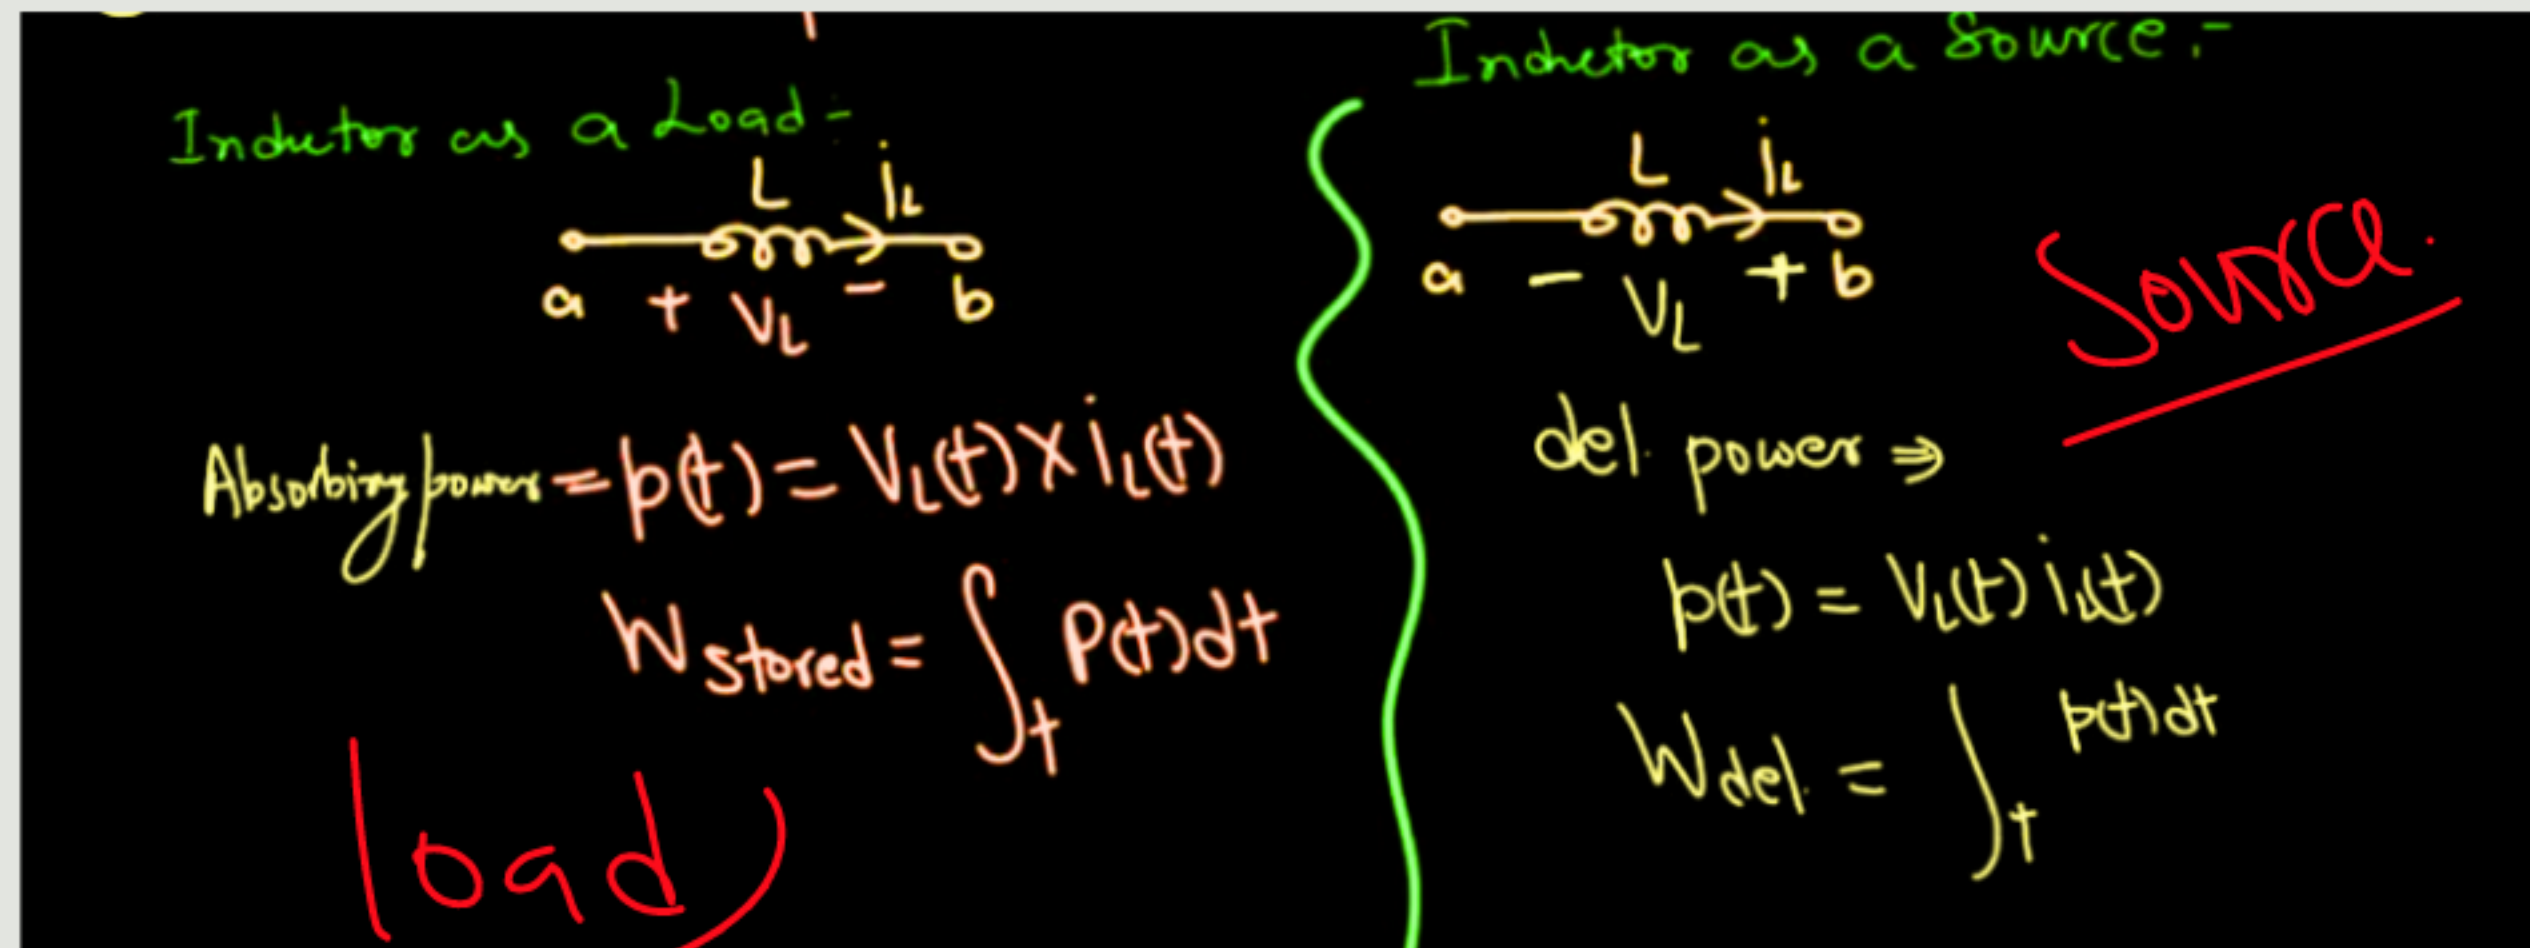 Inductor as a Load -
L iL
a + VL - b
Absorbing power = p(t) = VL(t) X iL(t)
W stored = ∫t P(t)dt
load
Inductor as a Source :-
L iL
a - VL + b
Source.
del. power ⇒
p(t) = VL(t) iL(t)
W del. = ∫t p(t)dt